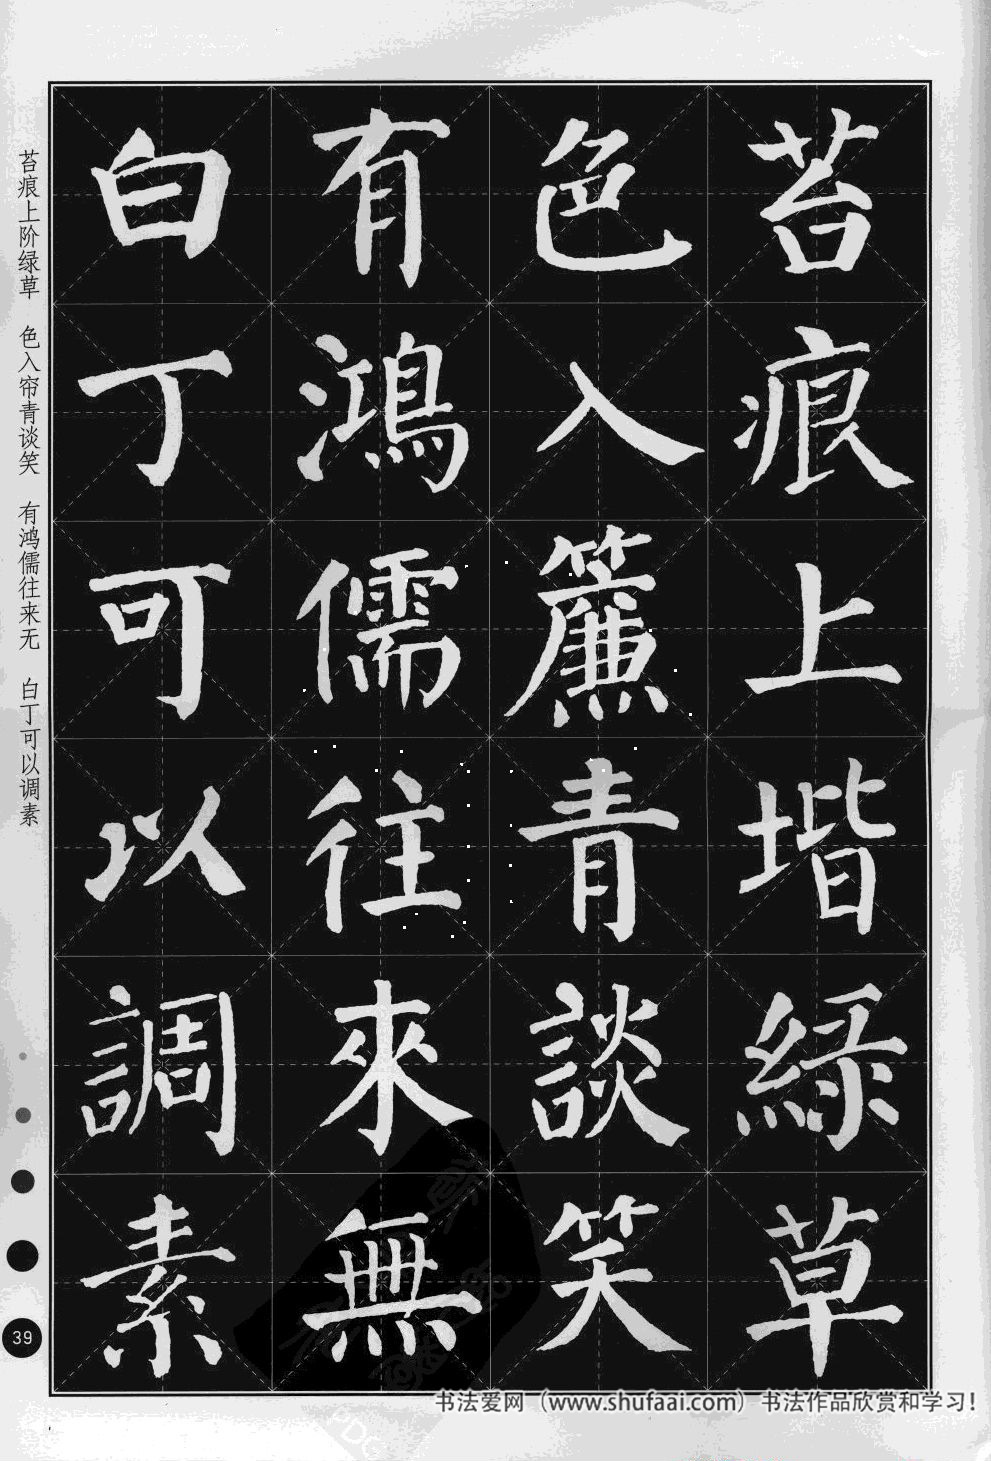 苔痕上堦綠草
色入簾青談笑
有鴻儒往來無
白丁可以調素
苔痕上阶绿草 色入帘青谈笑 有鸿儒往来无 白丁可以调素
39
书法爱网（www.shufaai.com）书法作品欣赏和学习！